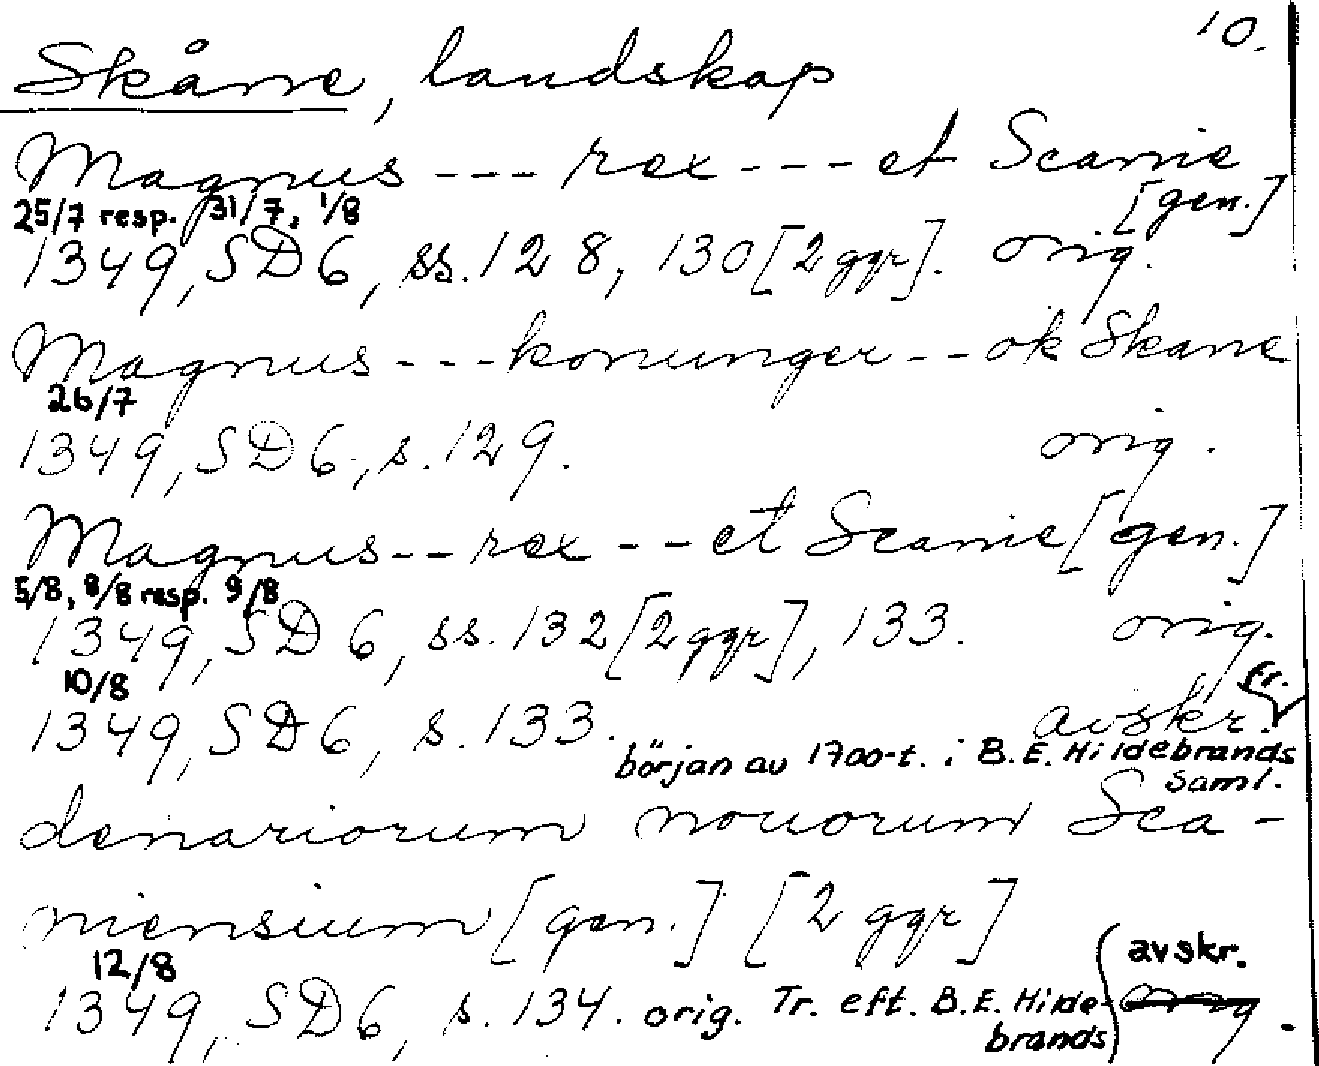 10.
Skåne, landskap
Magnus --- rex --- et Scanie
[gen.]
25/7 resp. 31/7, 1/8
1349, SD6, ss. 128, 130 [2 ggr]. orig.
Magnus --- konunger -- ok Skane
26/7
1349, SD6, s. 129. orig.
Magnus -- rex -- et Scanie [gen.]
5/8, 8/8 resp. 9/8
1349, SD6, ss. 132 [2 ggr], 133. orig.
10/8 fr.
1349, SD6, s. 133. avskr.
början av 1700-t. i B.E. Hildebrands
saml.
denariorum nouorum Sca-
niensium [gen.] [2 ggr]
12/8 avskr.
1349, SD6, s. 134. orig. Tr. eft. B.E. Hilde- orig.
brands